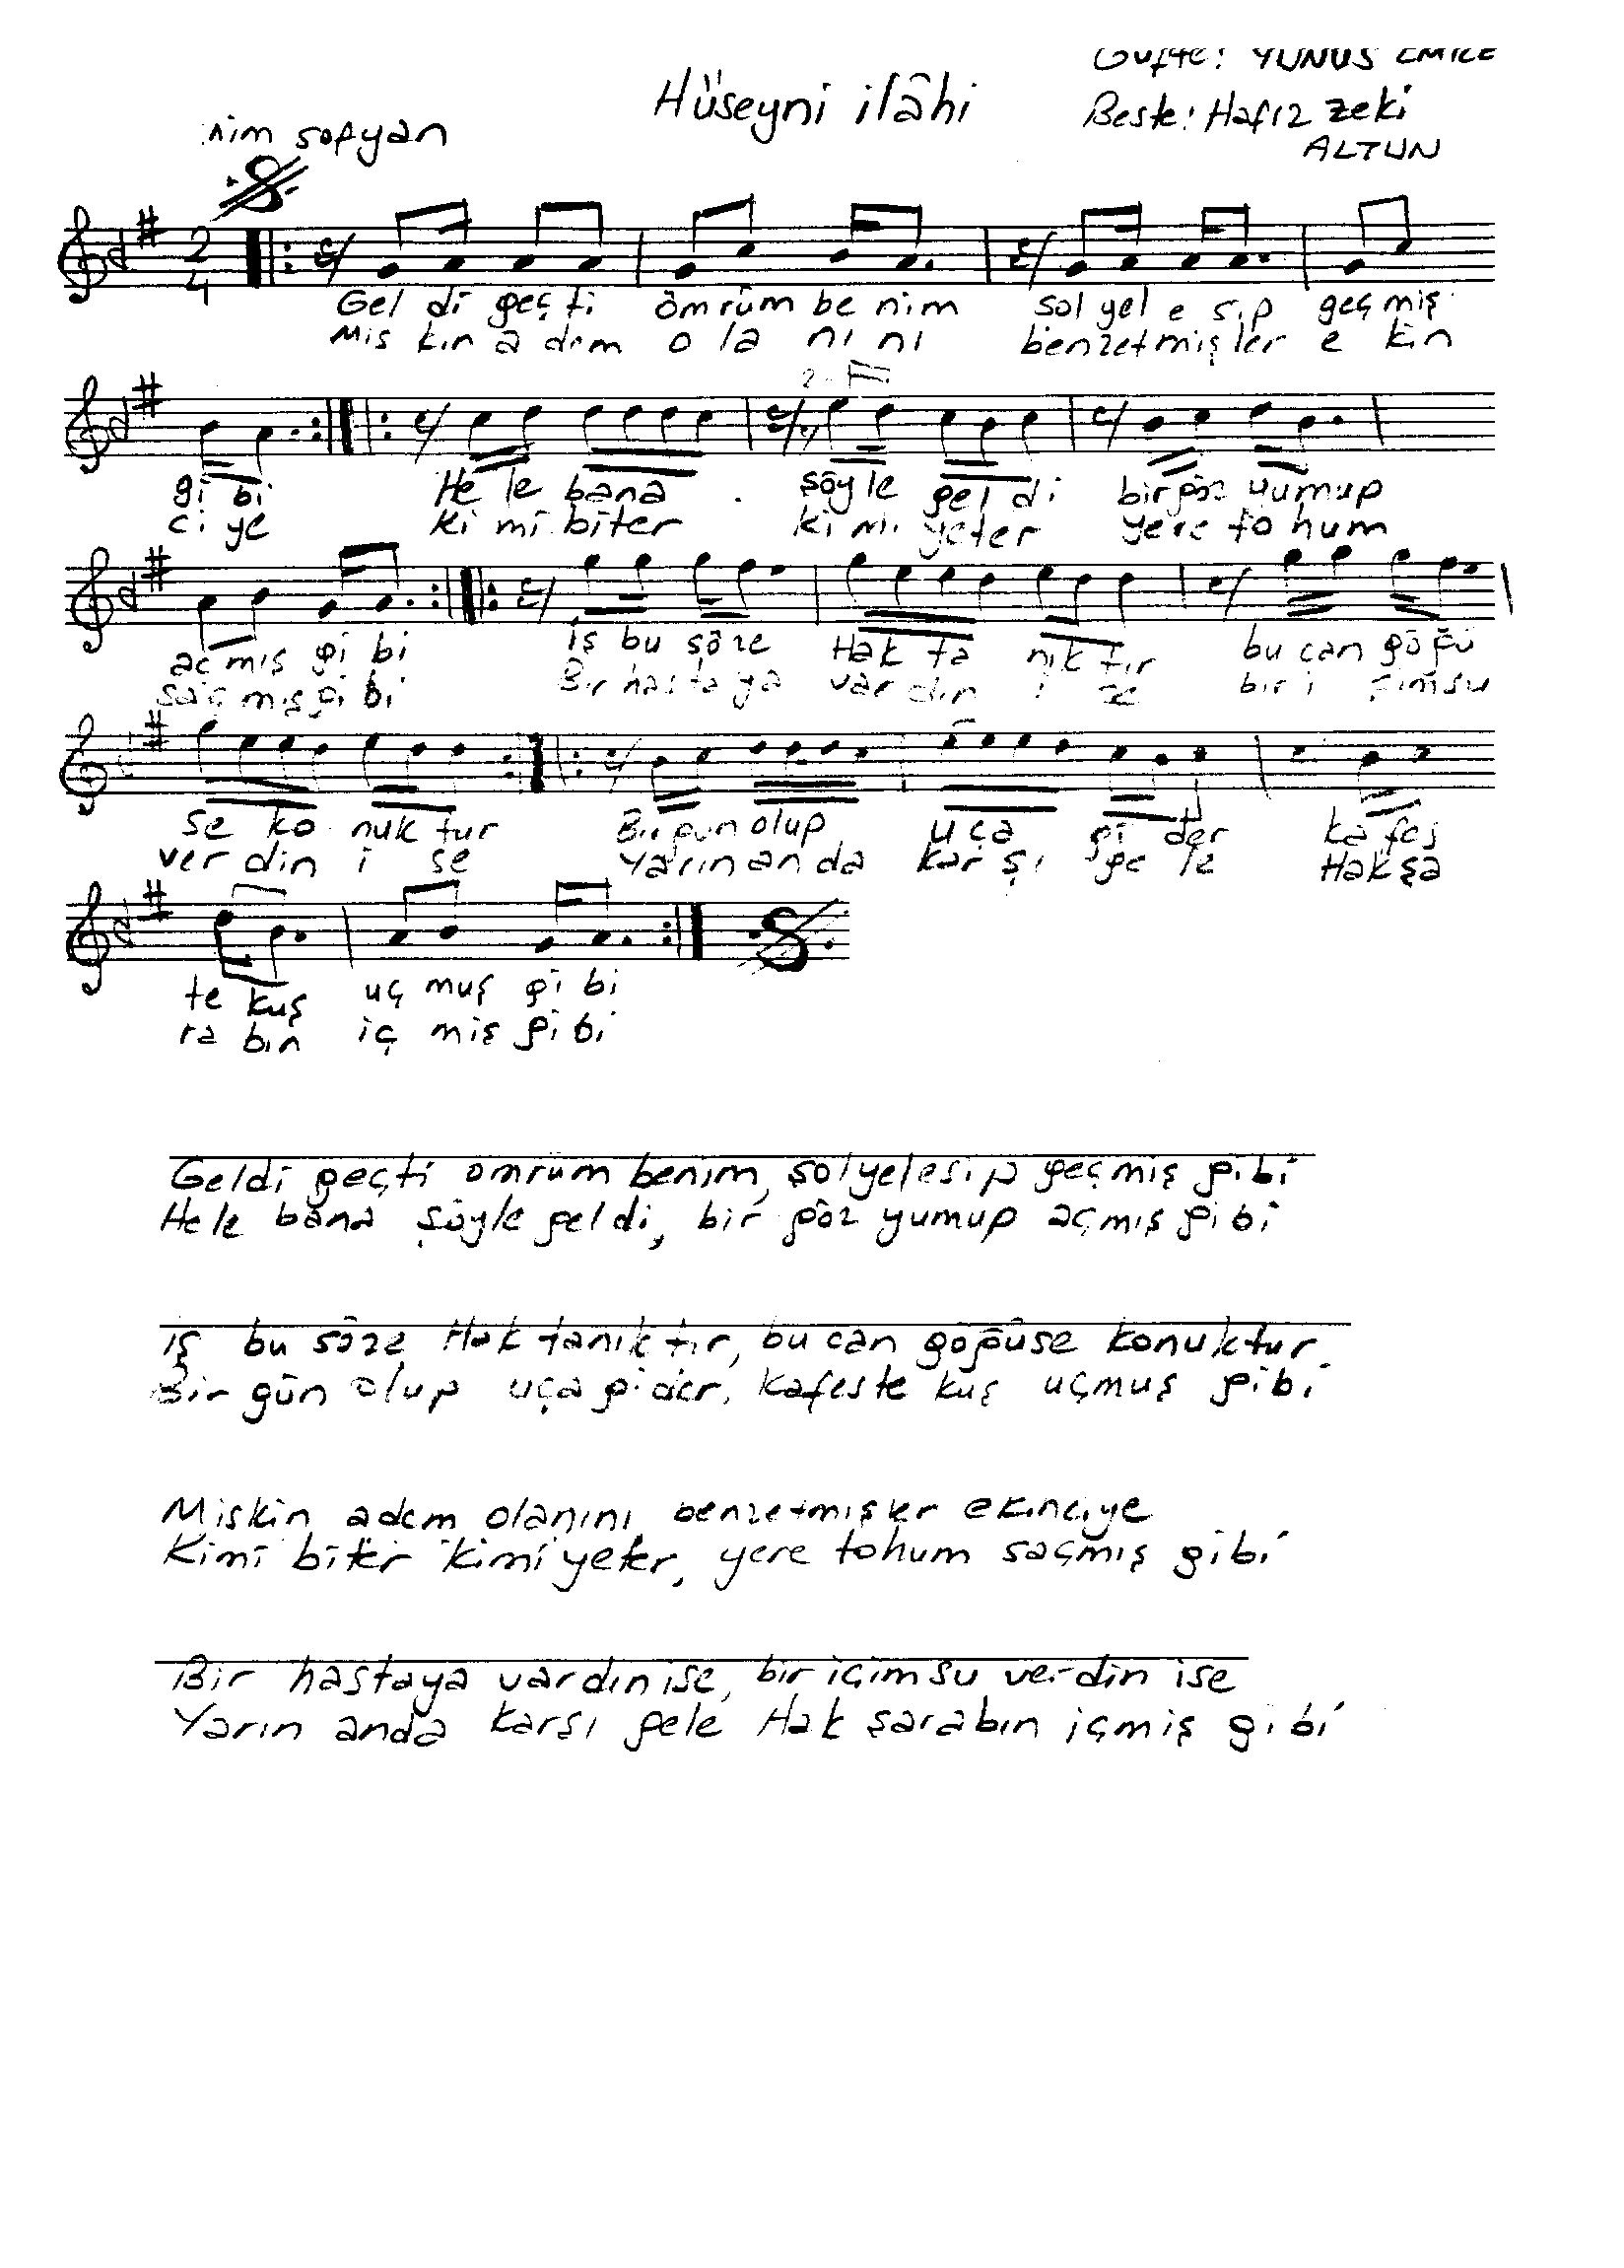 Güfte: YUNUS EMRE
Hüseyni ilâhi
Beste: Hafız Zeki
ALTUN
nim sofyan
2
4
Gel di geç ti ömrüm be nim şol yel e sip geçmiş
Mis kin a dem o la nı nı benzetmişler e kin
gi bi He le bana . söyle gel di bir göz yumup
ci ye ki mi biter ki mi yeter yere to hum
açmış gi bi İş bu söze Hak ta nık tır bu can göğü
saçmış gi bi Bir has ta ya var dın i se bir i çim su
se ko nuk tur Bir gün olup uça gi der ka fes
ver din i se Yarın an da kar şı ge le Hak şa
te kuş uç muş gi bi
ra bın iç miş gi bi
Geldi geçti ömrüm benim, şol yel esip geçmiş gibi
Hele bana şöyle geldi, bir göz yumup açmış gibi
iş bu söze Hak tanıktır, bu can göğüse konuktur
Bir gün olup uça gider, kafeste kuş uçmuş gibi
Miskin adem olanını benzetmişler ekinciye
Kimi biter kimi yeter, yere tohum saçmış gibi
Bir hastaya vardın ise, bir içim su verdin ise
Yarın anda karşı gele Hak şarabın içmiş gibi